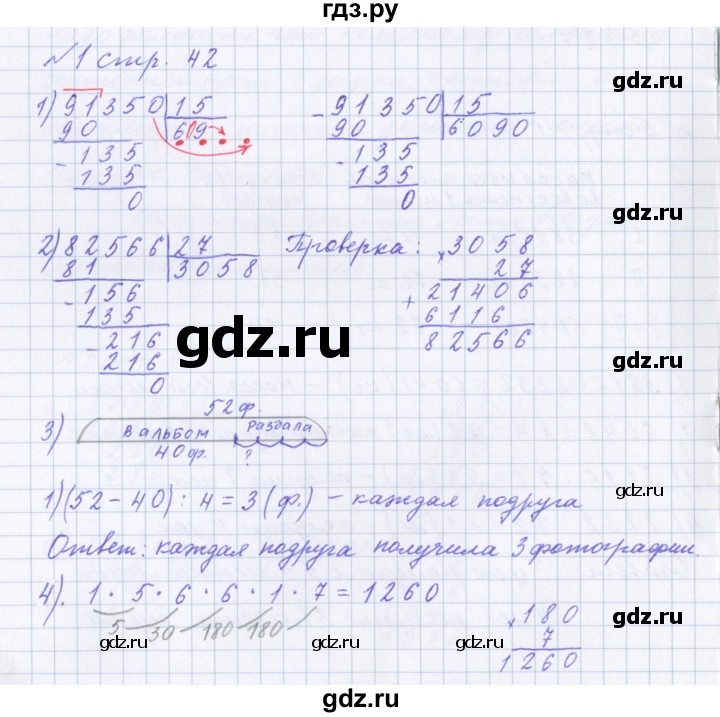 гдз.ру
№1 стр. 42
1) 91350 | 15
90 | 609
- 135
135
0
- 91350 | 15
90 | 6090
- 135
135
0
gdz.ru
gdz.ru
2) 82566 | 27
81 | 3058
- 156
135
- 216
216
0
Проверка: × 3058
27
+ 21406
6116
82566
gdz.ru
gdz.ru
3) 52 ф.
в альбом раздала
40 ф. ?
gdz.ru
1) (52 - 40) : 4 = 3 (ф.) - каждая подруга
Ответ: каждая подруга получила 3 фотографии.
4). 1 · 5 · 6 · 6 · 1 · 7 = 1260
5 30 180 180
× 180
7
1260
gdz.ru gdz.ru gdz.ru gdz.ru
gdz.ru